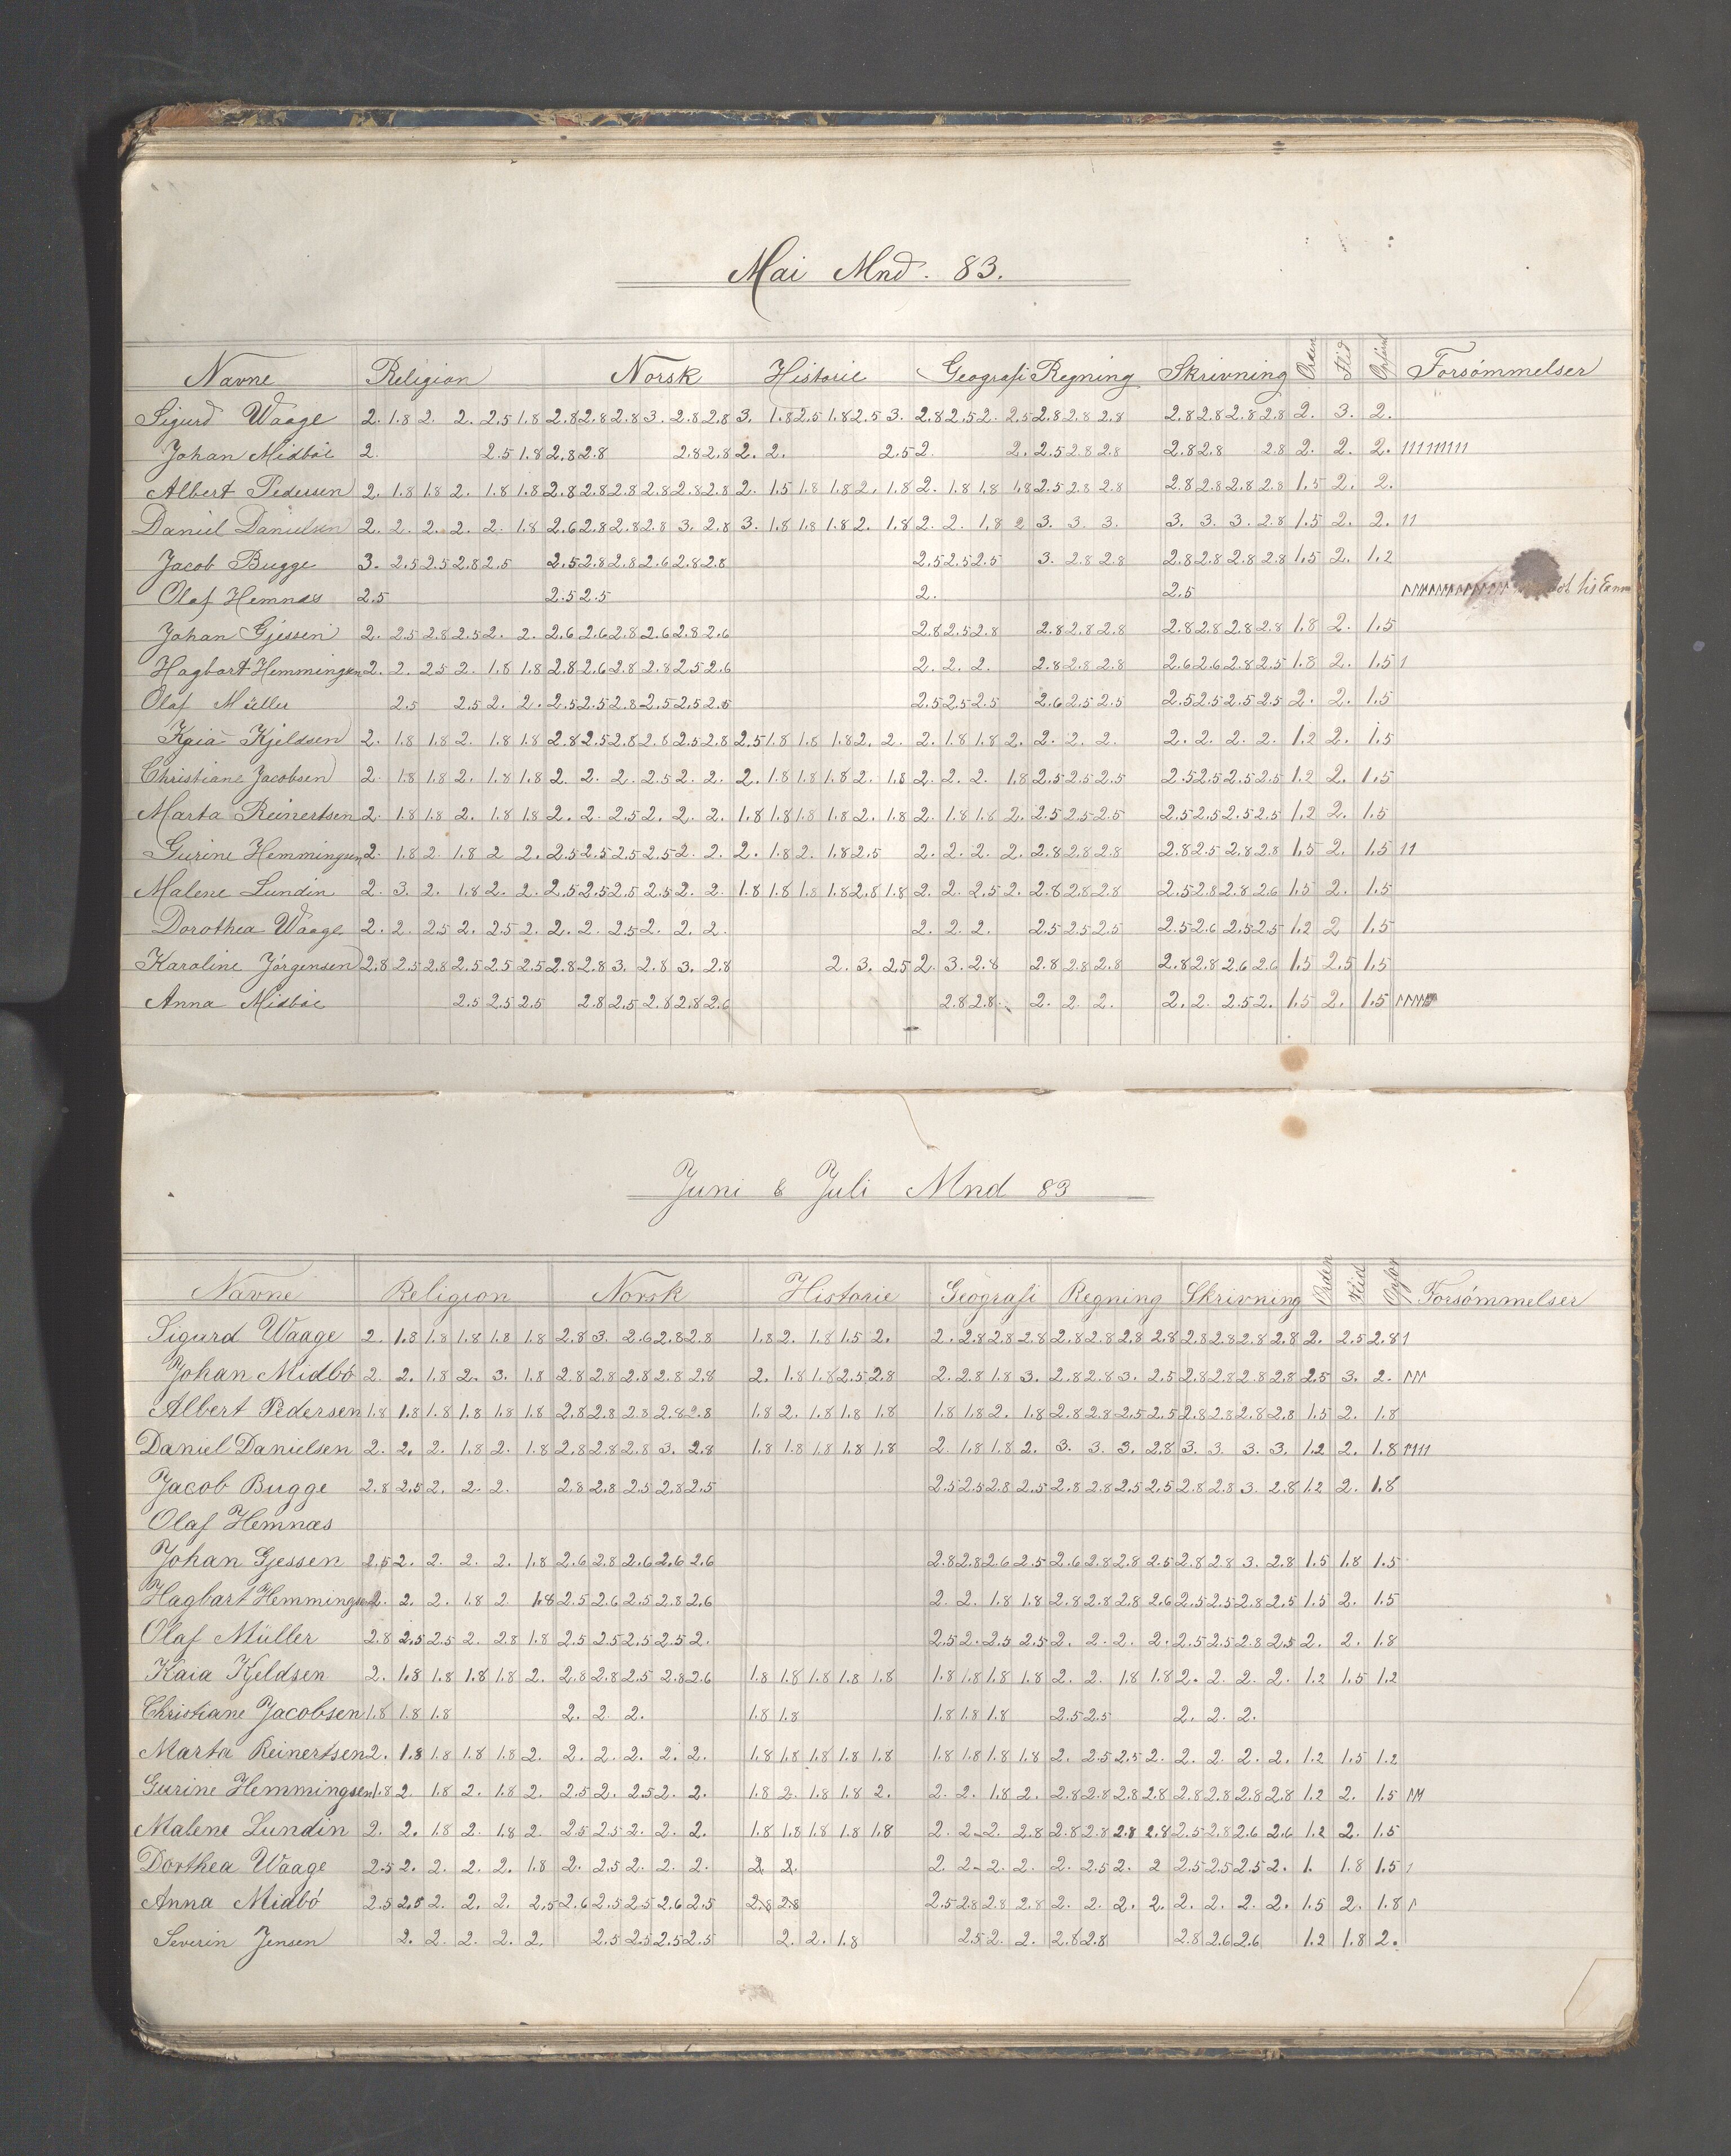 Mai Mnd. 83.
Navne Religion Norsk Historie Geografi Regning Skrivning Orden Flid Opførs Forsömmelser
Sigurd Waage 2. 1.8 2. 2. 2.5 1.8 2.8 2.8 2.8 3. 2.8 2.8 3. 1.8 2.5 1.8 2.5 3. 2.8 2.5 2. 2.5 2.8 2.8 2.8 2.8 2.8 2.8 2.8 2. 3. 2.
Johan Midböe 2. 2.5 1.8 2.8 2.8 2.8 2.8 2. 2. 2.5 2. 2. 2.5 2.8 2.8 2.8 2.8 2.8 2. 2. 2. 111111111
Albert Pedersen 2. 1.8 1.8 2. 1.8 1.8 2.8 2.8 2.8 2.8 2.8 2.8 2. 1.5 1.8 1.8 2. 1.8 2. 1.8 1.8 1.8 2.5 2.8 2.8 2.8 2.8 2.8 2.8 1.5 2. 2.
Daniel Danielsen 2. 2. 2. 2. 2. 1.8 2.6 2.8 2.8 2.8 3. 2.8 3. 1.8 1.8 1.8 2. 1.8 2. 2. 1.8 2 3. 3. 3. 3. 3. 3. 2.8 1.5 2. 2. 11
Jacob Bugge 3. 2.5 2.5 2.8 2.5 2.5 2.8 2.8 2.6 2.8 2.8 2.5 2.5 2.5 3. 2.8 2.8 2.8 2.8 2.8 2.8 1.5 2. 1.2
Olaf Hemnæs 2.5 2.5 2.5 2. 2.5
Johan Gjessen 2. 2.5 2.8 2.5 2. 2. 2.6 2.6 2.8 2.6 2.8 2.6 2.8 2.5 2.8 2.8 2.8 2.8 2.8 2.8 2.8 2.8 1.8 2. 1.5
Hagbart Hemmingsen 2. 2. 2.5 2. 1.8 1.8 2.8 2.6 2.8 2.8 2.5 2.6 2. 2. 2. 2.8 2.8 2.8 2.6 2.6 2.8 2.5 1.8 2. 1.5 1
Olaf Müller 2.5 2.5 2. 2. 2.5 2.5 2.8 2.5 2.5 2.5 2.5 2.5 2.5 2.6 2.5 2.5 2.5 2.5 2.5 2.5 2. 2. 1.5
Kaia Kjeldsen 2. 1.8 1.8 2. 1.8 1.8 2.8 2.5 2.8 2.8 2.5 2.8 2.5 1.8 1.8 1.8 2. 2. 2. 1.8 1.8 2. 2. 2. 2. 2. 2. 2. 2. 1.2 2. 1.5
Christiane Jacobsen 2. 1.8 1.8 2. 1.8 1.8 2. 2. 2. 2.5 2. 2. 2. 1.8 1.8 1.8 2. 1.8 2. 2. 2. 1.8 2.5 2.5 2.5 2.5 2.5 2.5 2.5 1.2 2. 1.5
Marta Reinertsen 2. 1.8 1.8 2. 1.8 1.8 2. 2. 2.5 2. 2. 2. 1.8 1.8 1.8 1.8 2. 1.8 2. 1.8 1.8 2. 2.5 2.5 2.5 2.5 2.5 2.5 2.5 1.2 2. 1.5
Gurine Hemmingsen 2. 1.8 2. 1.8 2 2. 2.5 2.5 2.5 2.5 2. 2. 2. 1.8 2. 1.8 2.5 2. 2. 2. 2. 2.8 2.8 2.8 2.8 2.5 2.8 2.8 1.5 2. 1.5 11
Malene Lundin 2. 3. 2. 1.8 2. 2. 2.5 2.5 2.5 2.5 2. 2. 1.8 1.8 1.8 1.8 2.8 1.8 2. 2. 2.5 2. 2.8 2.8 2.8 2.5 2.8 2.8 2.6 1.5 2. 1.5
Dorothea Waage 2. 2. 2.5 2. 2.5 2. 2. 2. 2.5 2. 2. 2. 2. 2. 2. 2.5 2.5 2.5 2.5 2.6 2.5 2.5 1.2 2 1.5
Karoline Jörgensen 2.8 2.5 2.8 2.5 2.5 2.5 2.8 2.8 3. 2.8 3. 2.8 2. 3. 2.5 2. 3. 2.8 2.8 2.8 2.8 2.8 2.8 2.6 2.6 1.5 2.5 1.5
Anna Midböe 2.5 2.5 2.5 2.8 2.5 2.8 2.8 2.6 2.8 2.8 2. 2. 2. 2. 2. 2.5 2. 1.5 2. 1.5
Juni & Juli Mnd 83
Navne Religion Norsk Historie Geografi Regning Skrivning Orden Flid Opför Forsömmelser
Sigurd Waage 2. 1.8 1.8 1.8 1.8 1.8 2.8 3. 2.6 2.8 2.8 1.8 2. 1.8 1.5 2. 2. 2.8 2.8 2.8 2.8 2.8 2.8 2.8 2.8 2.8 2.8 2.8 2. 2.5 2.8 1
Johan Midbö 2. 2. 1.8 2. 3. 1.8 2.8 2.8 2.8 2.8 2.8 2. 1.8 1.8 2.5 2.8 2. 2.8 1.8 3. 2.8 2.8 3. 2.5 2.8 2.8 2.8 2.8 2.5 3. 2. 111
Albert Pedersen 1.8 1.8 1.8 1.8 1.8 1.8 2.8 2.8 2.8 2.8 2.8 1.8 2. 1.8 1.8 1.8 1.8 1.8 2. 1.8 2.8 2.8 2.5 2.5 2.8 2.8 2.8 2.8 1.5 2. 1.8
Daniel Danielsen 2. 2. 2. 1.8 2. 1.8 2.8 2.8 2.8 3. 2.8 1.8 1.8 1.8 1.8 1.8 2. 1.8 1.8 2. 3. 3. 3. 2.8 3. 3. 3. 3. 1.2 2. 1.8 1111
Jacob Bugge 2.8 2.5 2. 2. 2. 2.8 2.8 2.5 2.8 2.5 2.5 2.5 2.8 2.5 2.8 2.8 2.5 2.5 2.8 2.8 3. 2.8 1.2 2. 1.8
Olaf Hemnæs
Johan Gjessen 2.5 2. 2. 2. 2. 1.8 2.6 2.8 2.6 2.6 2.6 2.8 2.8 2.6 2.5 2.6 2.8 2.8 2.5 2.8 2.8 3. 2.8 1.5 1.8 1.5
Hagbart Hemmingsen 2. 2. 2. 1.8 2 1.8 2.5 2.6 2.5 2.8 2.6 2. 2. 1.8 1.8 2.8 2.8 2.8 2.6 2.5 2.5 2.8 2.5 1.5 2. 1.5
Olaf Müller 2.8 2.5 2.5 2. 2.8 1.8 2.5 2.5 2.5 2.5 2. 2.5 2. 2.5 2.5 2. 2. 2. 2. 2.5 2.5 2.8 2.5 2. 2. 1.8
Kaia Kjeldsen 2. 1.8 1.8 1.8 1.8 2. 2.8 2.8 2.5 2.8 2.6 1.8 1.8 1.8 1.8 1.8 1.8 1.8 1.8 1.8 2. 2. 1.8 1.8 2. 2. 2. 2. 1.2 1.5 1.2
Christiane Jacobsen 1.8 1.8 1.8 2. 2. 2. 1.8 1.8 1.8 1.8 1.8 2.5 2.5 2. 2. 2.
Marta Reinertsen 2. 1.8 1.8 1.8 1.8 2. 2. 2. 2. 2. 2. 1.8 1.8 1.8 1.8 1.8 1.8 1.8 1.8 1.8 2. 2.5 2.5 2. 2. 2. 2. 2. 1.2 1.5 1.2
Gurine Hemmingsen 1.8 2. 1.8 2. 1.8 2. 2.5 2. 2.5 2. 2. 1.8 2. 1.8 1.8 2. 2. 2. 1.8 2. 2.8 2.8 2.8 2.8 2.8 2.8 2.8 2.8 1.2 2. 1.5 111
Malene Lundin 2. 2. 1.8 2. 1.8 2. 2.5 2.5 2. 2. 2. 1.8 1.8 1.8 1.8 1.8 2. 2. 2. 2.8 2.8 2.8 2.8 2.8 2.5 2.8 2.6 2.6 1.2 2. 1.5
Dorthea Waage 2.5 2. 2. 2. 2. 1.8 2. 2.5 2. 2. 2. 2. 2. 2. 2. 2. 2. 2. 2.5 2. 2 2.5 2.5 2.5 2. 1. 1.8 1.5 1
Anna Midbö 2.5 2.5 2. 2. 2. 2.5 2.6 2.5 2.5 2.6 2.5 2.8 2.8 2.5 2.8 2.8 2.8 2. 2. 2. 2. 2. 2. 2. 2. 1.5 2. 1.8 1
Severin Jensen 2. 2. 2. 2. 2. 2.5 2.5 2.5 2.5 2. 2. 1.8 2.5 2. 2. 2.8 2.8 2.8 2.6 2.6 1.2 1.8 2.